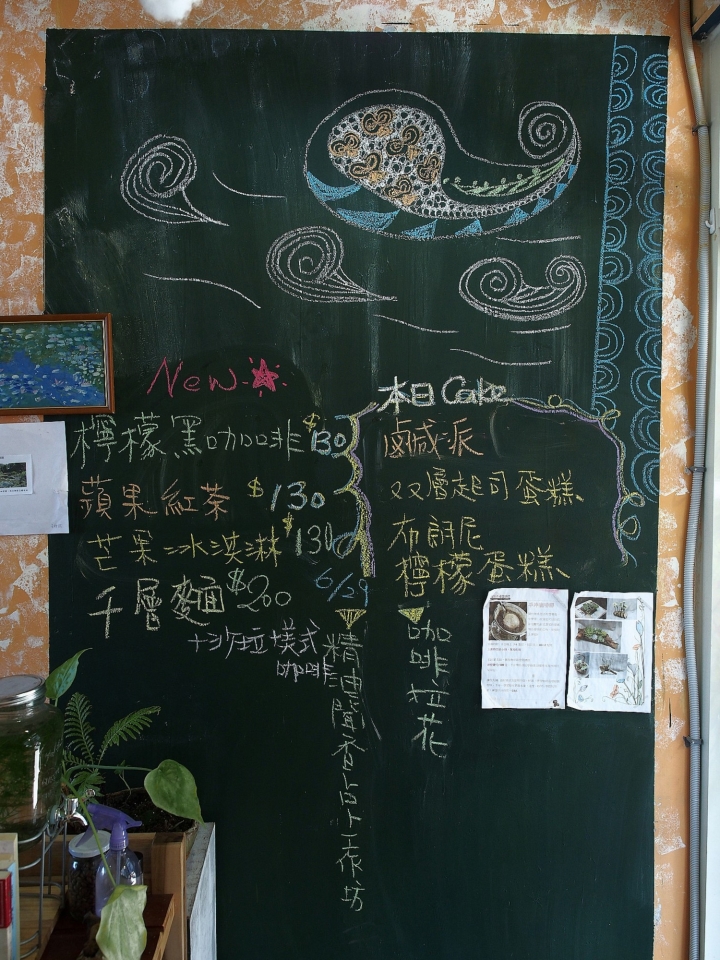 New
檸檬黑咖啡 $130
蘋果紅茶 $130
芒果冰淇淋 $130
千層麵 $200
+沙拉+美式
咖啡
本日 Cake
鹹派
双層起司蛋糕
布朗尼
檸檬蛋糕
6/29
精油聞香占卜工作坊
咖啡拉花